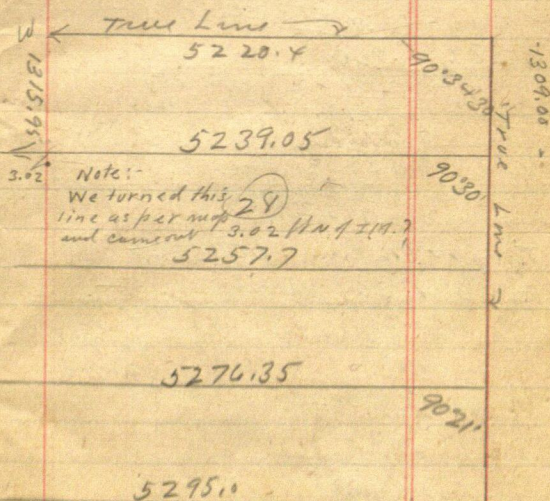 W True Line
5220.4
1315.95
90°34'30
1309.00
True Line
5239.05
3.02
90°30'
Note:-
We turned this
line as per map
and came out 3.02 ft N of I.M.?
28
5257.7
5276.35
90°21'
5295.0